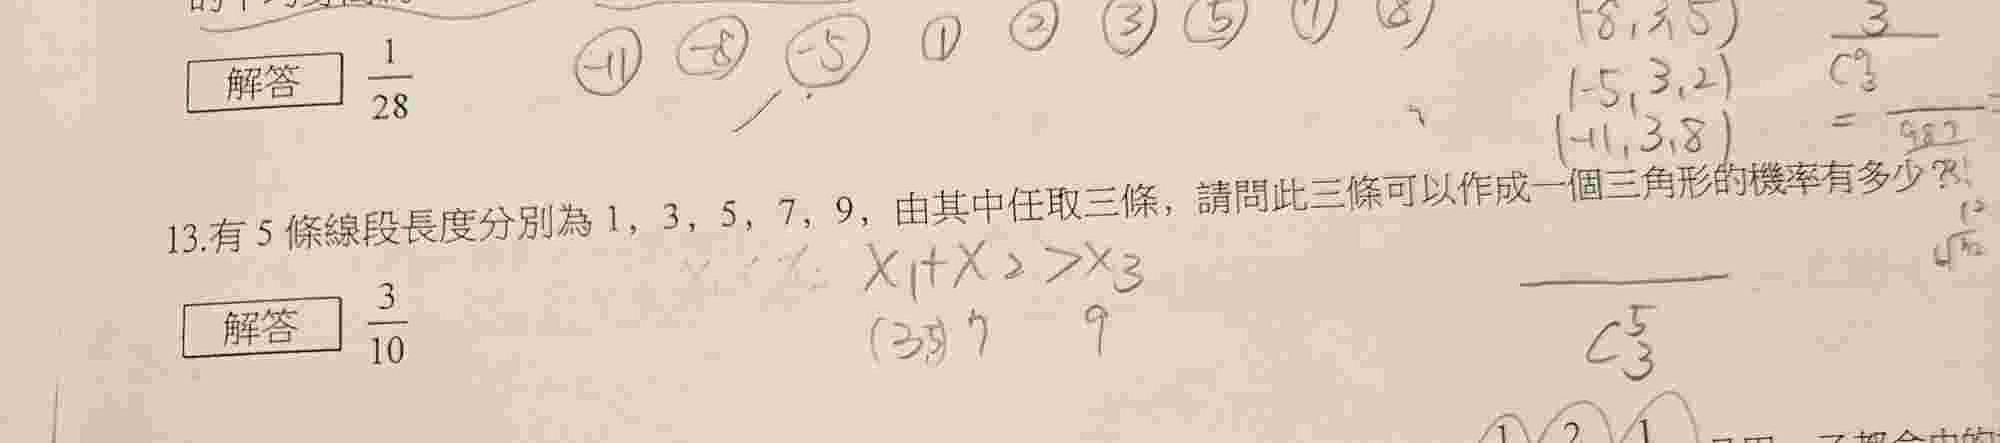 -11 -8 -5 1 2 3 5 7 8
(-5,3,2)
(-11,3,8)
3
C⁹₃
=
解答 1/28
13.有 5 條線段長度分別為 1，3，5，7，9，由其中任取三條，請問此三條可以作成一個三角形的機率有多少？
X₁+X₂>X₃
(3,5) 7 9
C⁵₃
解答 3/10
1 2 1